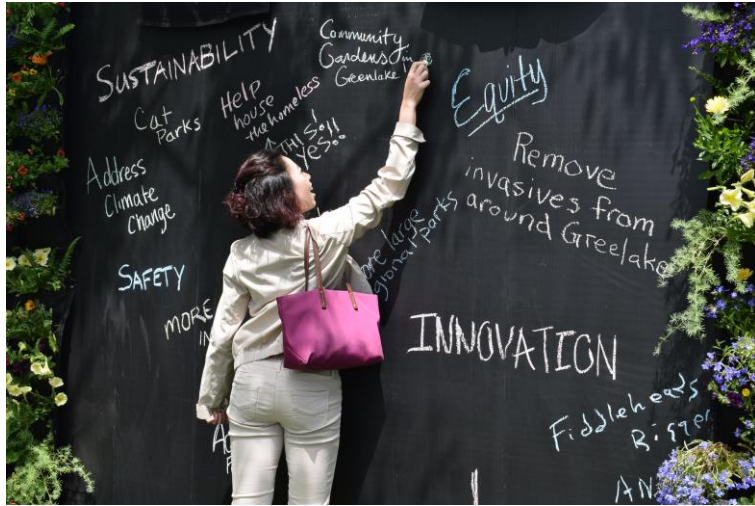 SUSTAINABILITY
Community
Gardens in
Greenlake
Equity
Cat
Parks
Help
house
the homeless
↑ THIS!
Yes!!
Address
Climate
Change
Remove
invasives from
around Greelake
large
parks
SAFETY
MORE
IN
INNOVATION
Fiddleheads
Bigger